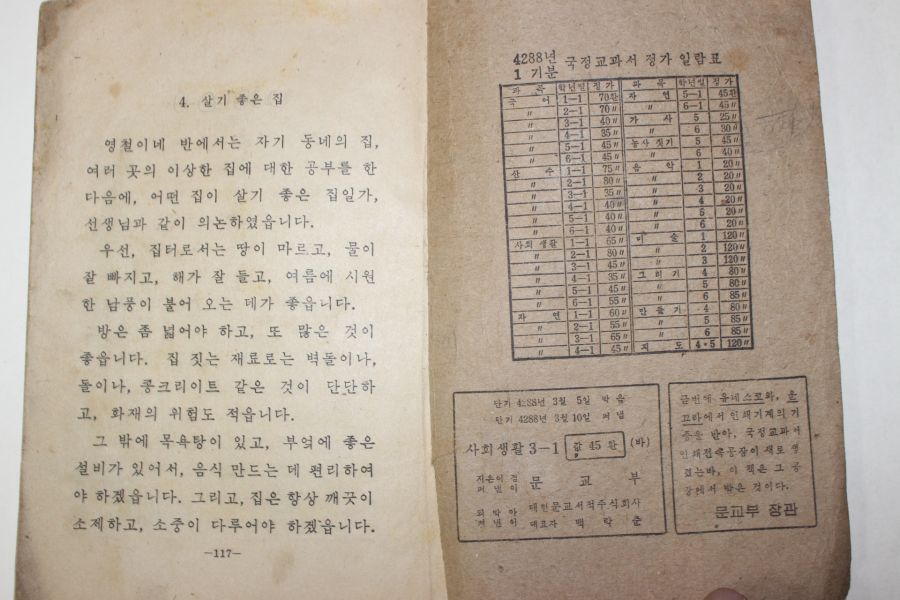 4. 살기 좋은 집
영철이네 반에서는 자기 동네의 집,
여러 곳의 이상한 집에 대한 공부를 한
다음에, 어떤 집이 살기 좋은 집일가,
선생님과 같이 의논하였읍니다.
우선, 집터로서는 땅이 마르고, 물이
잘 빠지고, 해가 잘 들고, 여름에 시원
한 남풍이 불어 오는 데가 좋읍니다.
방은 좀 넓어야 하고, 또 많은 것이
좋읍니다. 집 짓는 재료로는 벽돌이나,
돌이나, 콩크리이트 같은 것이 단단하
고, 화재의 위험도 적읍니다.
그 밖에 목욕탕이 있고, 부엌에 좋은
설비가 있어서, 음식 만드는 데 편리하여
야 하겠읍니다. 그리고, 집은 항상 깨끗이
소제하고, 소중이 다루어야 하겠읍니다.
—117—
4288년
1 기분
국정교과서 정가 일람표
과 목 학년별 정 가 과 목 학년별 정 가
국 어 1—1 70환 자 연 5—1 45환
〃 2—1 70〃 〃 6—1 45〃
〃 3—1 40〃 가 사 5 25〃
〃 4—1 35〃 〃 6 30〃
〃 5—1 45〃 농사 짓기 5 45〃
〃 6—1 45〃 〃 6 40〃
산 수 1—1 75〃 음 악 1 20〃
〃 2—1 80〃 〃 2 20〃
〃 3—1 35〃 〃 3 20〃
〃 4—1 40〃 〃 4 20〃
〃 5—1 40〃 〃 5 20〃
〃 6—1 40〃 〃 6 20〃
사회 생활 1—1 65〃 미 술 1 120〃
〃 2—1 80〃 〃 2 120〃
〃 3—1 45〃 〃 3 120〃
〃 4—1 35〃 그 리 기 4 80〃
〃 5—1 45〃 〃 5 80〃
〃 6—1 55〃 〃 6 85〃
자 연 1—1 60〃 만 들 기 4 80〃
〃 2—1 55〃 〃 5 85〃
〃 3—1 65〃 〃 6 85〃
〃 4—1 45〃 지 도 4·5 120〃
단기 4288년 3월 5일 박음
단기 4288년 3월 10일 펴냄
사회생활 3—1 값 45 환 (바)
지은이 겸
펴낸이 문 교 부
되박아
펴낸이 대한문교서적주식회사
대표자 백 낙 준
금번에 유네스코와, 운
끄라에서 인쇄기계의 기
증을 받아, 국정교과서
인쇄전속공장이 새로 생
겼는바, 이 책은 그 공
장에서 박은 것이다.
문교부 장관